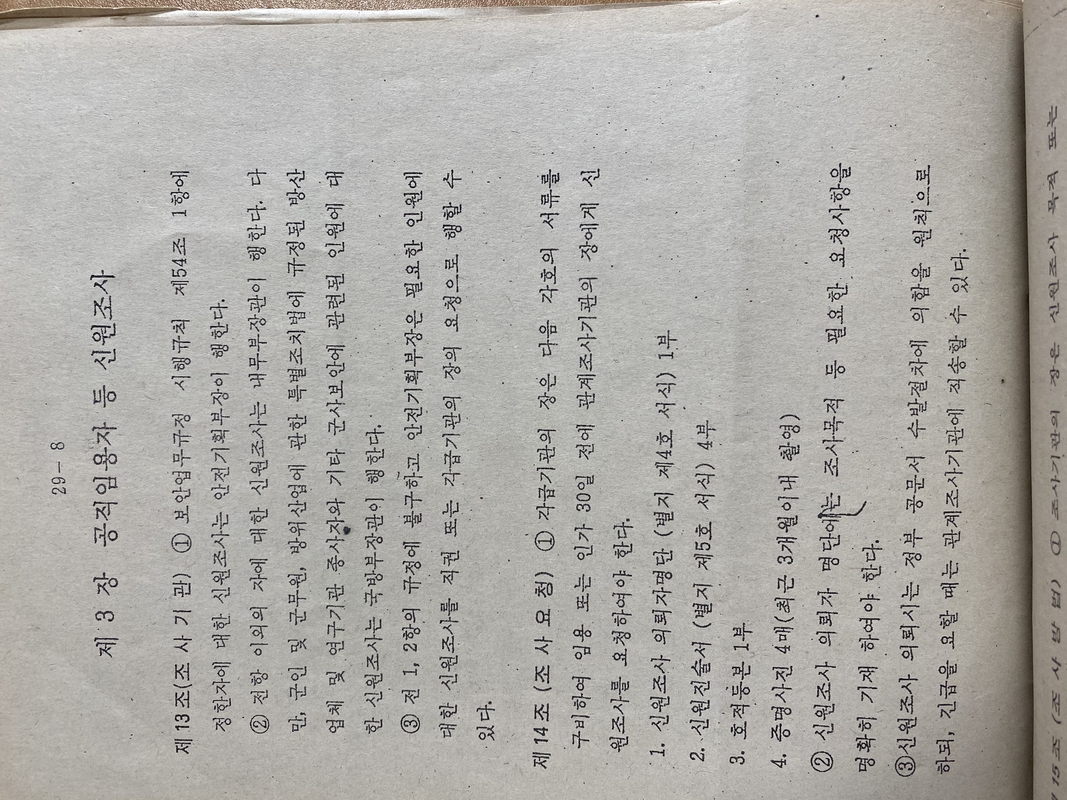 29-8
제 3 장 공직임용자 등 신원조사
제13조(조 사 기 관) ① 보안업무규정 시행규칙 제54조 1항에
정한자에 대한 신원조사는 안전기획부장이 행한다.
② 전항 이외의 자에 대한 신원조사는 내무부장관이 행한다. 다
만, 군인 및 군무원, 방위산업에 관한 특별조치법에 규정된 방산
업체 및 연구기관 종사자와 기타 군사보안에 관련된 인원에 대
한 신원조사는 국방부장관이 행한다.
③ 전 1, 2항의 규정에 불구하고 안전기획부장은 필요한 인원에
대한 신원조사를 직권 또는 각급기관의 장의 요청으로 행할 수
있다.
제14조 (조 사 요 청) ① 각급기관의 장은 다음 각호의 서류를
구비하여 임용 또는 인가 30일 전에 관계조사기관의 장에게 신
원조사를 요청하여야 한다.
1. 신원조사 의뢰자명단 (별지 제4호 서식) 1부
2. 신원진술서 (별지 제5호 서식) 4부
3. 호적등본 1부
4. 증명사진 4매(최근 3개월이내 촬영)
② 신원조사 의뢰자 명단에는 조사목적 등 필요한 요청사항을
명확히 기재 하여야 한다.
③신원조사 의뢰시는 정부 공문서 수발절차에 의함을 원칙으로
하되, 긴급을 요할 때는 관계조사기관에 직송할 수 있다.
15조 (조 사 방 법) ① 조사기관의 장은 신원조사 목적 또는